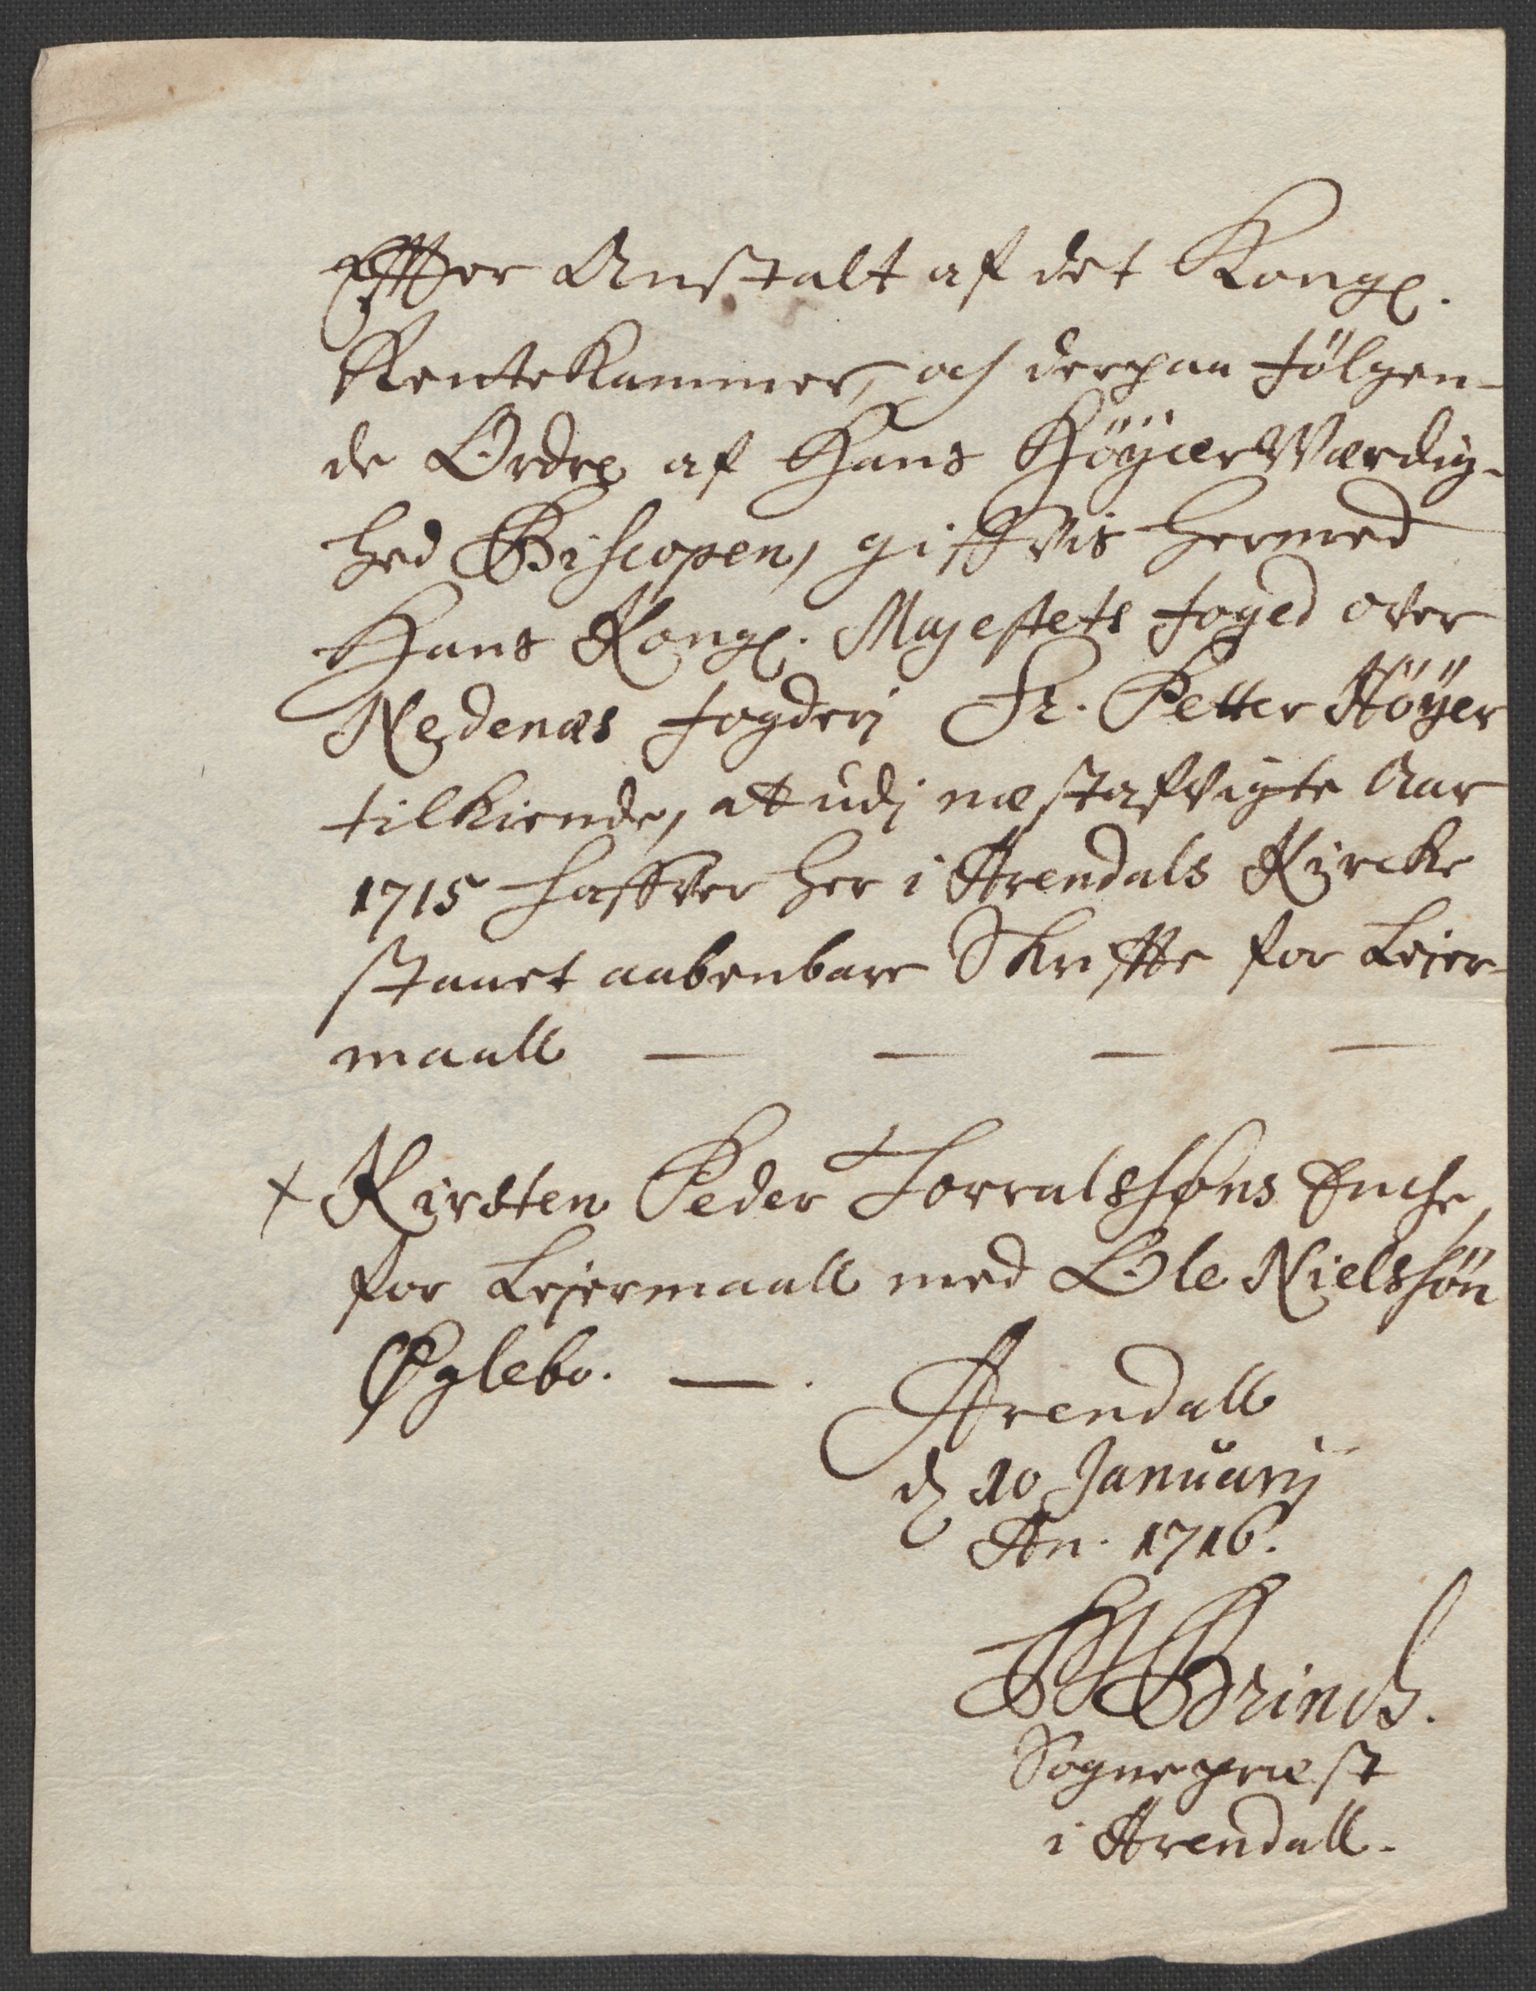 Effter Anstalt af det Kongl.
RenteKammer, och derpaa følgen-
de Ordre af Hans HöyærWærdig-
hed Biscopen, giffvis hermed
Hans Kongl. Majestets foged over
Nedenæs fogderj Sr. Petter Höyer
tilkiende, at udj næstafvigte Aar
1715 haffver her i Arendals Kircke
staaet aabenbare Skriffte for Leier-
maall — — — —
+ Kirsten Peder Torralssøns Enche,
for Leiermaall med Ole Nielssön
Øglebo. — .
Arendall
d 10 Januarij
An. 1716.
Brinch.
Sognepræst
i Arendall.